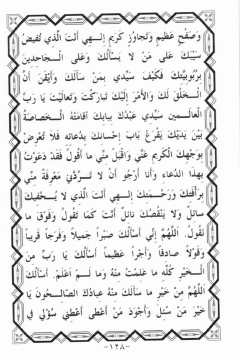 وَصَفْحٍ عَظِيمٍ وَتَجاوُزٍ كَرِيمٍ إِلـهِي أَنْتَ الَّذِي تُفِيضُ
سَيْبَكَ عَلى مَنْ لا يَسْأَلُكَ وَعَلى الـجاحِدِينَ
بِرُبُوبِيَّتِكَ فَكَيْفَ سَيِّدِي بِمَنْ سَأَلَكَ وَأَيْقَنَ أَنَّ
الـخَلْقَ لَكَ وَالأَمْرَ إِلَيْكَ تَبارَكْتَ وَتَعالَيْتَ يا رَبَّ
العالَـمِينَ سَيِّدِي عَبْدُكَ بِبابِكَ أَقامَتْهُ الـخَصاصَةُ
بَيْنَ يَدَيْكَ يَقْرَعُ بابَ إِحْسانِكَ بِدُعائِهِ فَلا تُعْرِضْ
بِوَجْهِكَ الكَرِيمِ عَنِّي وَاقْبَلْ مِنِّي ما أَقُولُ فَقَدْ دَعَوْتُ
بِهذا الدُّعاءِ وَأَنا أَرْجُو أَنْ لا تَرُدَّنِي مَعْرِفَةً مِنِّي
بِرَأْفَتِكَ وَرَحْـمَتِكَ إِلـهِي أَنْتَ الَّذِي لا يُحْفِيكَ
سائِلٌ وَلا يَنْقُصُكَ نائِلٌ أَنْتَ كَما تَقُولُ وَفَوْقَ ما
نَقُولُ. اللّهُمَّ إِنِّي أَسْأَلُكَ صَبْراً جَمِيلاً وَفَرَجاً قَرِيباً
وَقَوْلاً صادِقاً وَأَجْراً عَظِيماً أَسْأَلُكَ يا رَبِّ مِن
الـخَيْرِ كُلِّهِ ما عَلِمْتُ مِنْهُ وَما لَـمْ أَعْلَمْ. أَسْأَلُكَ
اللّهُمَّ مِنْ خَيْرِ ما سَأَلَكَ مِنْهُ عِبادُكَ الصّالِـحُونَ يا
خَيْرَ مَنْ سُئِلَ وَأَجْوَدَ مَنْ أَعْطى أَعْطِنِي سُؤْلِي فِي
-١٢٨-